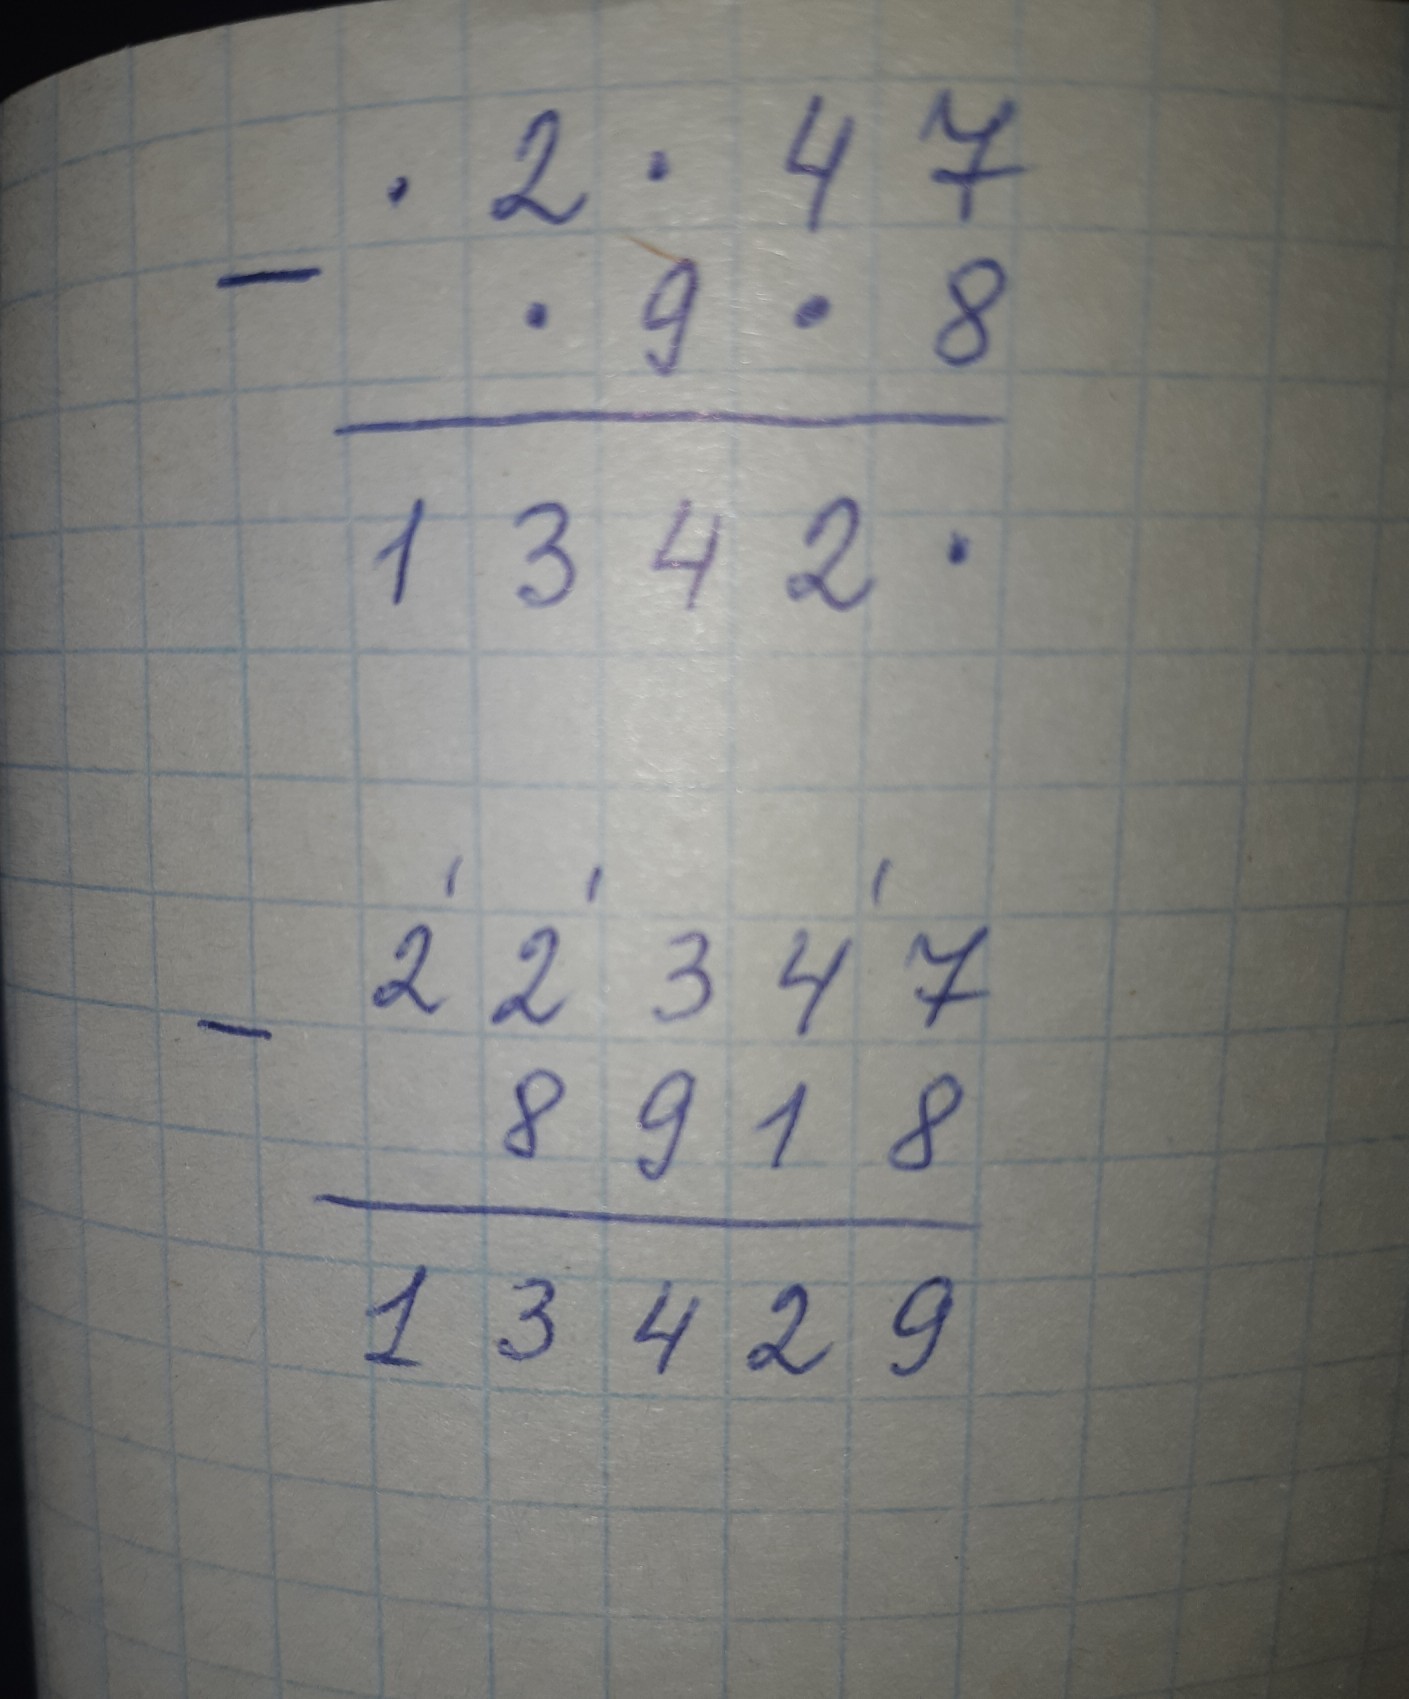 · 2 · 4 7
−
· 9 · 8
1 3 4 2 ·
ı ı ı
2 2 3 4 7
−
8 9 1 8
1 3 4 2 9